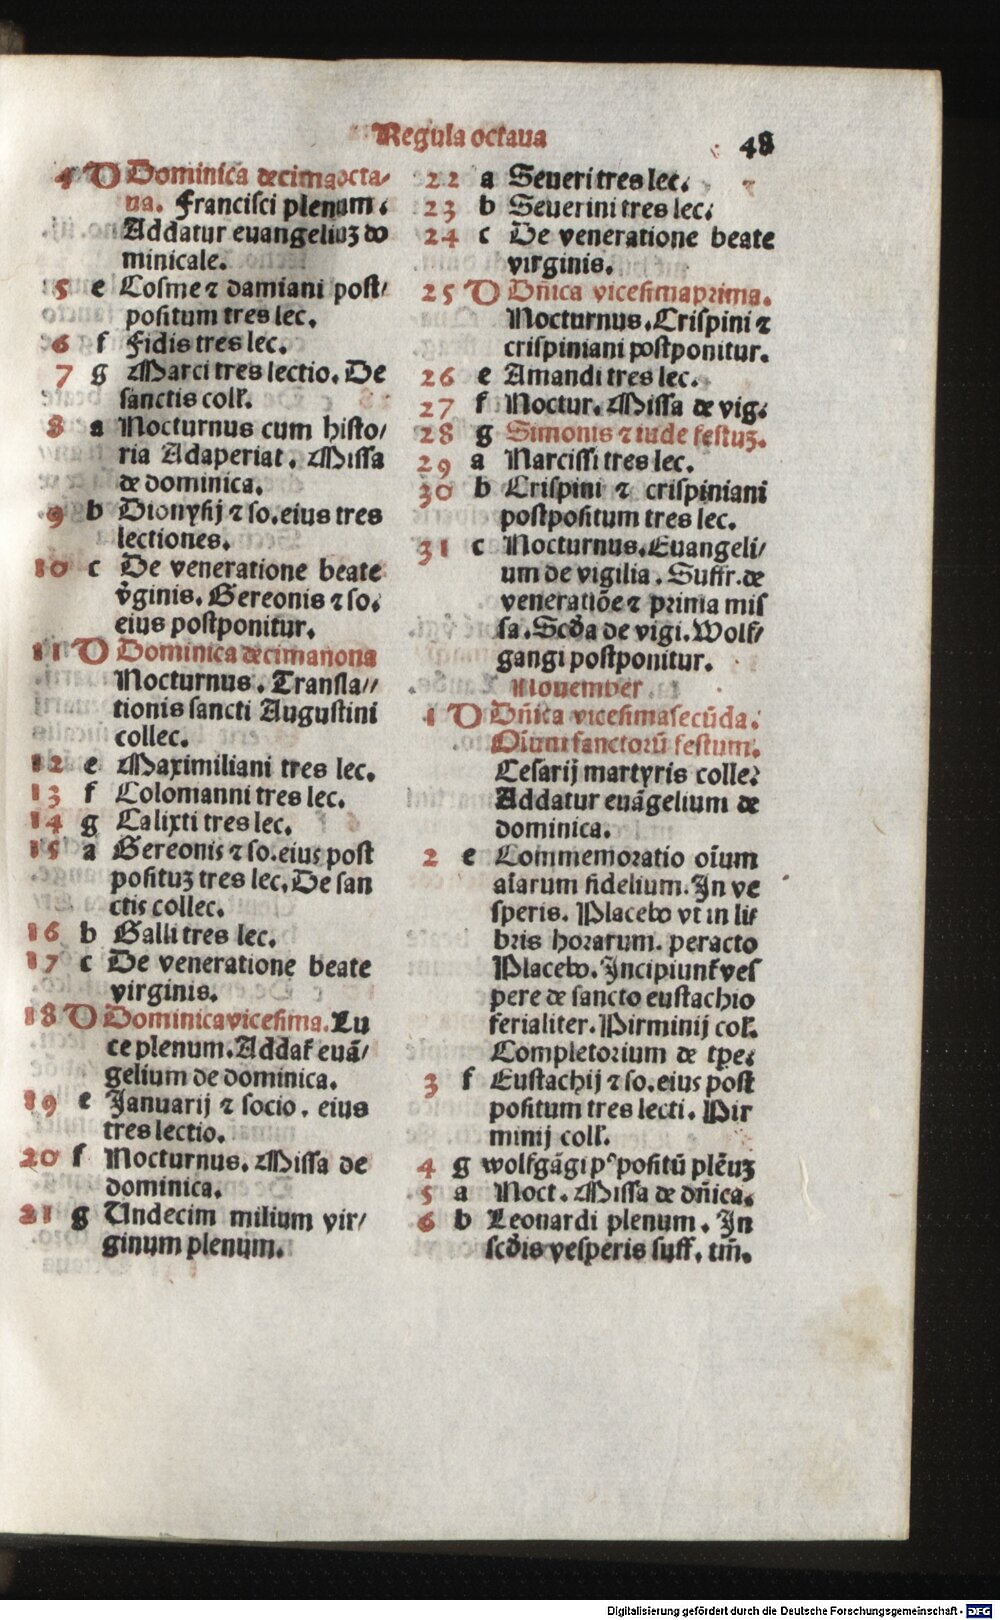 Regula octaua
48
4 D Dominica decimaocta-
ua. Francisci plenum.
Addatur euangeliuꝫ do
minicale.
5 e Cosme ⁊ damiani post/
positum tres lec.
6 f Fidis tres lec.
7 g Marci tres lectio. De
sanctis coll'.
8 a Nocturnus cum histo/
ria Adaperiat. Missa
de dominica.
9 b Dionysij ⁊ so. eius tres
lectiones.
10 c De veneratione beate
v̓ginis. Gereonis ⁊ so.
eius postponitur.
11 D Dominica decimanona
Nocturnus. Transla//
tionis sancti Augustini
collec.
12 e Maximiliani tres lec.
13 f Colomanni tres lec.
14 g Calixti tres lec.
15 a Gereonis ⁊ so. eius post
posituꝫ tres lec. De san
ctis collec.
16 b Galli tres lec.
17 c De veneratione beate
virginis.
18 D Dominica vicesima. Lu
ce plenum. Addat̓ euā/
gelium de dominica.
19 e Januarij ⁊ socio. eius
tres lectio.
20 f Nocturnus. Missa de
dominica.
21 g Undecim milium vir/
ginum plenum.
22 a Seueri tres lec.
23 b Seuerini tres lec.
24 c De veneratione beate
virginis.
25 D Dn̄ica vicesimaprima.
Nocturnus. Crispini ⁊
crispiniani postponitur.
26 e Amandi tres lec.
27 f Noctur. Missa de vig.
28 g Simonis ⁊ iude festuꝫ.
29 a Narcissi tres lec.
30 b Crispini ⁊ crispiniani
postpositum tres lec.
31 c Nocturnus. Euangeli/
um de vigilia. Suffr. de
veneratiōe ⁊ prima mis
sa. Scd̓a de vigi. Wolf/
gangi postponitur.
Nouember
1 D Dn̄ica vicesimasecūda.
Oīum sanctorū festum.
Cesarij martyris colle.
Addatur euāgelium de
dominica.
2 e Commemoratio oīum
aīarum fidelium. In ve
speris. Placebo vt in li
bris horarum. peracto
Placebo. Incipiunt̓ ves
pere de sancto eustachio
ferialiter. Pirminij col'.
Completorium de tp̄e.
3 f Eustachij ⁊ so. eius post
positum tres lecti. Pir
minij coll'.
4 g wolfgāgi pꝰpositū plēuꝫ
5 a Noct. Missa de dn̄ica.
6 b Leonardi plenum. In
scd̓is vesperis suff. tm̄.
Digitalisierung gefördert durch die Deutsche Forschungsgemeinschaft - DFG